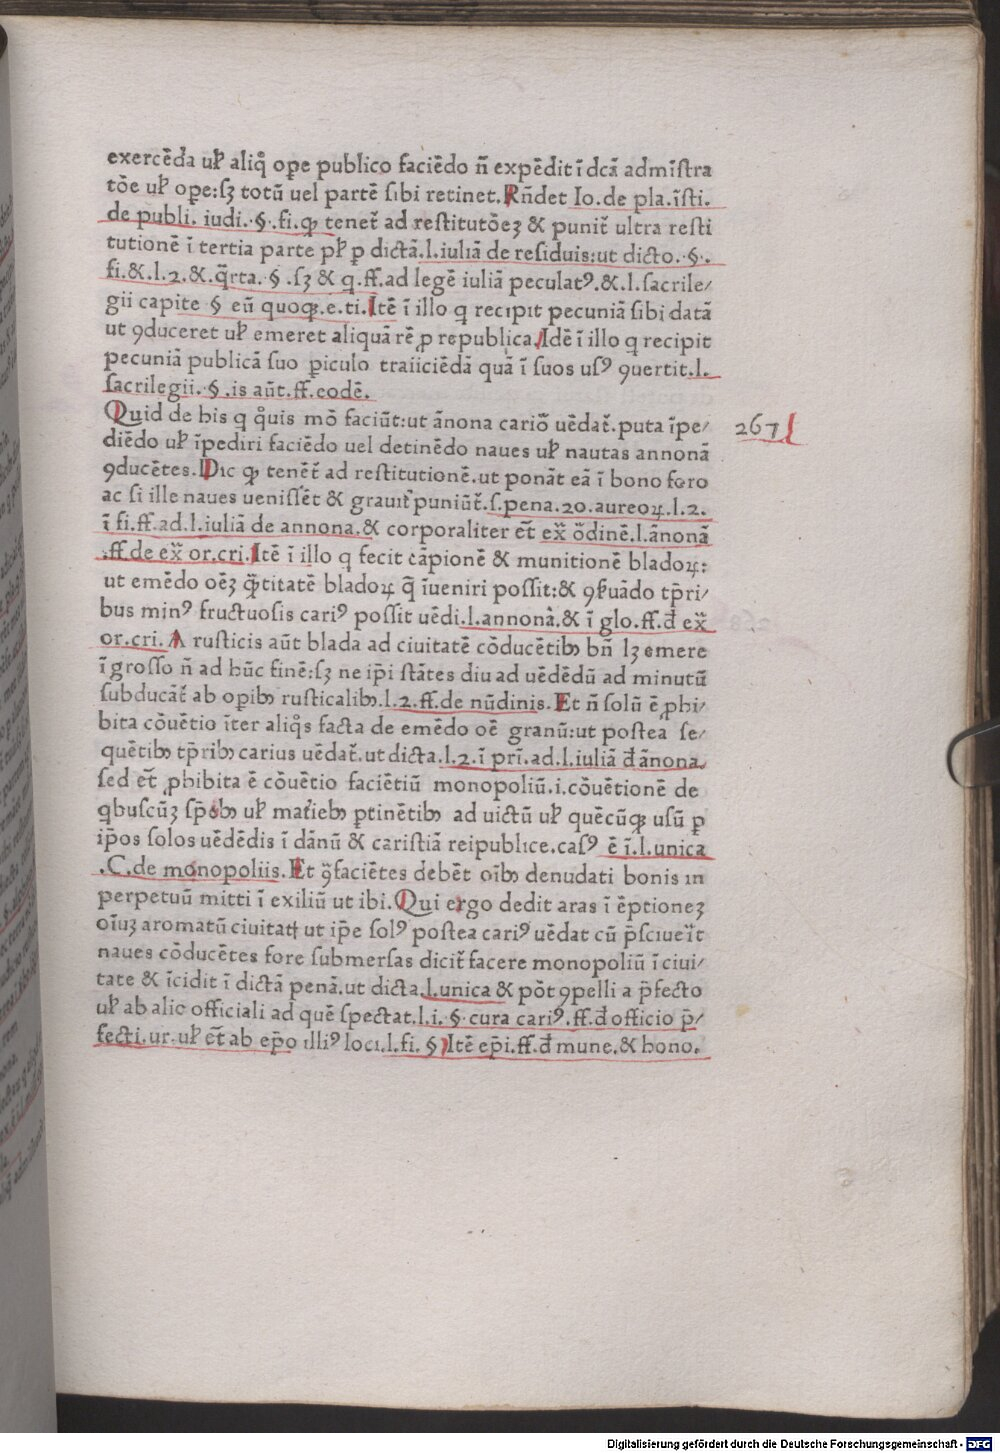 exercēda ul̄ aliq̊ oꝑe publico faciēdo n̄ expēdit ī dcā admīstra
tōe ul̄ oꝑe:sꝫ totū uel partē sibi retinet.Rn̄det Io.de pla.īsti.
de publi. iudi.§.fi.ꝙ tenet̄ ad restitutōeꝫ & punit̄ ultra resti
tutionē ī tertia parte pl̄ ꝑ dictā.l.iuliā de residuis:ut dicto.§.
fi.&.l.2.&.q̄rta.§.sꝫ & q.ff.ad legē iuliā peculatꝰ.&.l.sacrile/
gii capite § eū quoqꝫ.e.ti.Itē ī illo q recipit pecuniā sibi datā
ut ꝯduceret ul̄ emeret aliquā rē ꝓ republica.Idē ī illo q recipit
pecuniā publicā suo ꝑiculo traiiciēdā quā ī suos usꝰ ꝯuertit.l.
sacrilegii.§.is aūt.ff.eodē.
Quid de his q q̊uis mō faciūt:ut ānona cariō uēdat̄.puta īpe/
diēdo ul̄ īpediri faciēdo uel detinēdo naues ul̄ nautas annonā
ꝯducētes.Dic ꝙ tenēt̄ ad restitutionē.ut ponāt eā ī bono foro
ac si ille naues uenissēt & grauit̄ puniūt̄.s.pena.20.aureoꝝ.l.2.
ī fi.ff.ad.l.iuliā de annona.& corporaliter et̄ ex̄ ōdinē.l.ānonā
.ff.de ex̄ or.cri.Itē ī illo q fecit cāpionē & munitionē bladoꝝ:
ut emēdo oēꝫ q̄titatē bladoꝝ q̄ īueniri possit:& ꝯl̄uādo tp̄ri/
bus minꝰ fructuosis cariꝰ possit uēdi.l.annonā.& ī glo.ff.đ ex̄
or.cri.A rusticis aūt blada ad ciuitatē cōducētibꝫ bn̄ lꝫ emere
ī grosso n̄ ad hūc finē:sꝫ ne ip̄i stātes diu ad uēdēdū ad minutū
subducāt̄ ab oꝑibꝫ rusticalibꝫ.l.2.ff.de nūdinis.Et n̄ solū ē ꝓhi/
bita cōuētio īter aliq̊s facta de emēdo oē granū:ut postea se/
quētibꝫ tp̄ribꝫ carius uēdat̄.ut dicta.l.2.ī pri.ad.l.iuliā đ ānona.
sed et̄ ꝓhibita ē cōuētio faciētiū monopoliū.i.cōuētionē de
qbuscūꝫ sp̄ebꝫ ul̄ mat̄iebꝫ ꝑtinētibꝫ ad uictū ul̄ quēcūqꝫ usū ꝑ
ip̄os solos uēdēdis ī dānū & caristiā reipublice.casꝰ ē ī.l.unica
.C.de monopoliis.Et q̄ faciētes debēt oībꝫ denudati bonis in
perpetuū mitti ī exiliū ut ibi.Qui ergo dedit aras ī ēptioneꝫ
oīuꝫ aromatū ciuitatꝭ ut ip̄e solꝰ postea cariꝰ uēdat cū p̄sciuerit
naues cōducētes fore submersas dicit̄ facere monopoliū ī ciui/
tate & īcidit ī dictā penā.ut dicta.l.unica & pōt ꝯpelli a p̄fecto
ul̄ ab alio officiali ad quē spectat.l.i.§.cura cariꝰ.ff.đ officio p̄/
fecti.ur.ul̄ et̄ ab ep̄o illiꝰ loci.l.fi.§ Itē ep̄i.ff.đ mune.& hono.
267
Digitalisierung gefördert durch die Deutsche Forschungsgemeinschaft - DFG